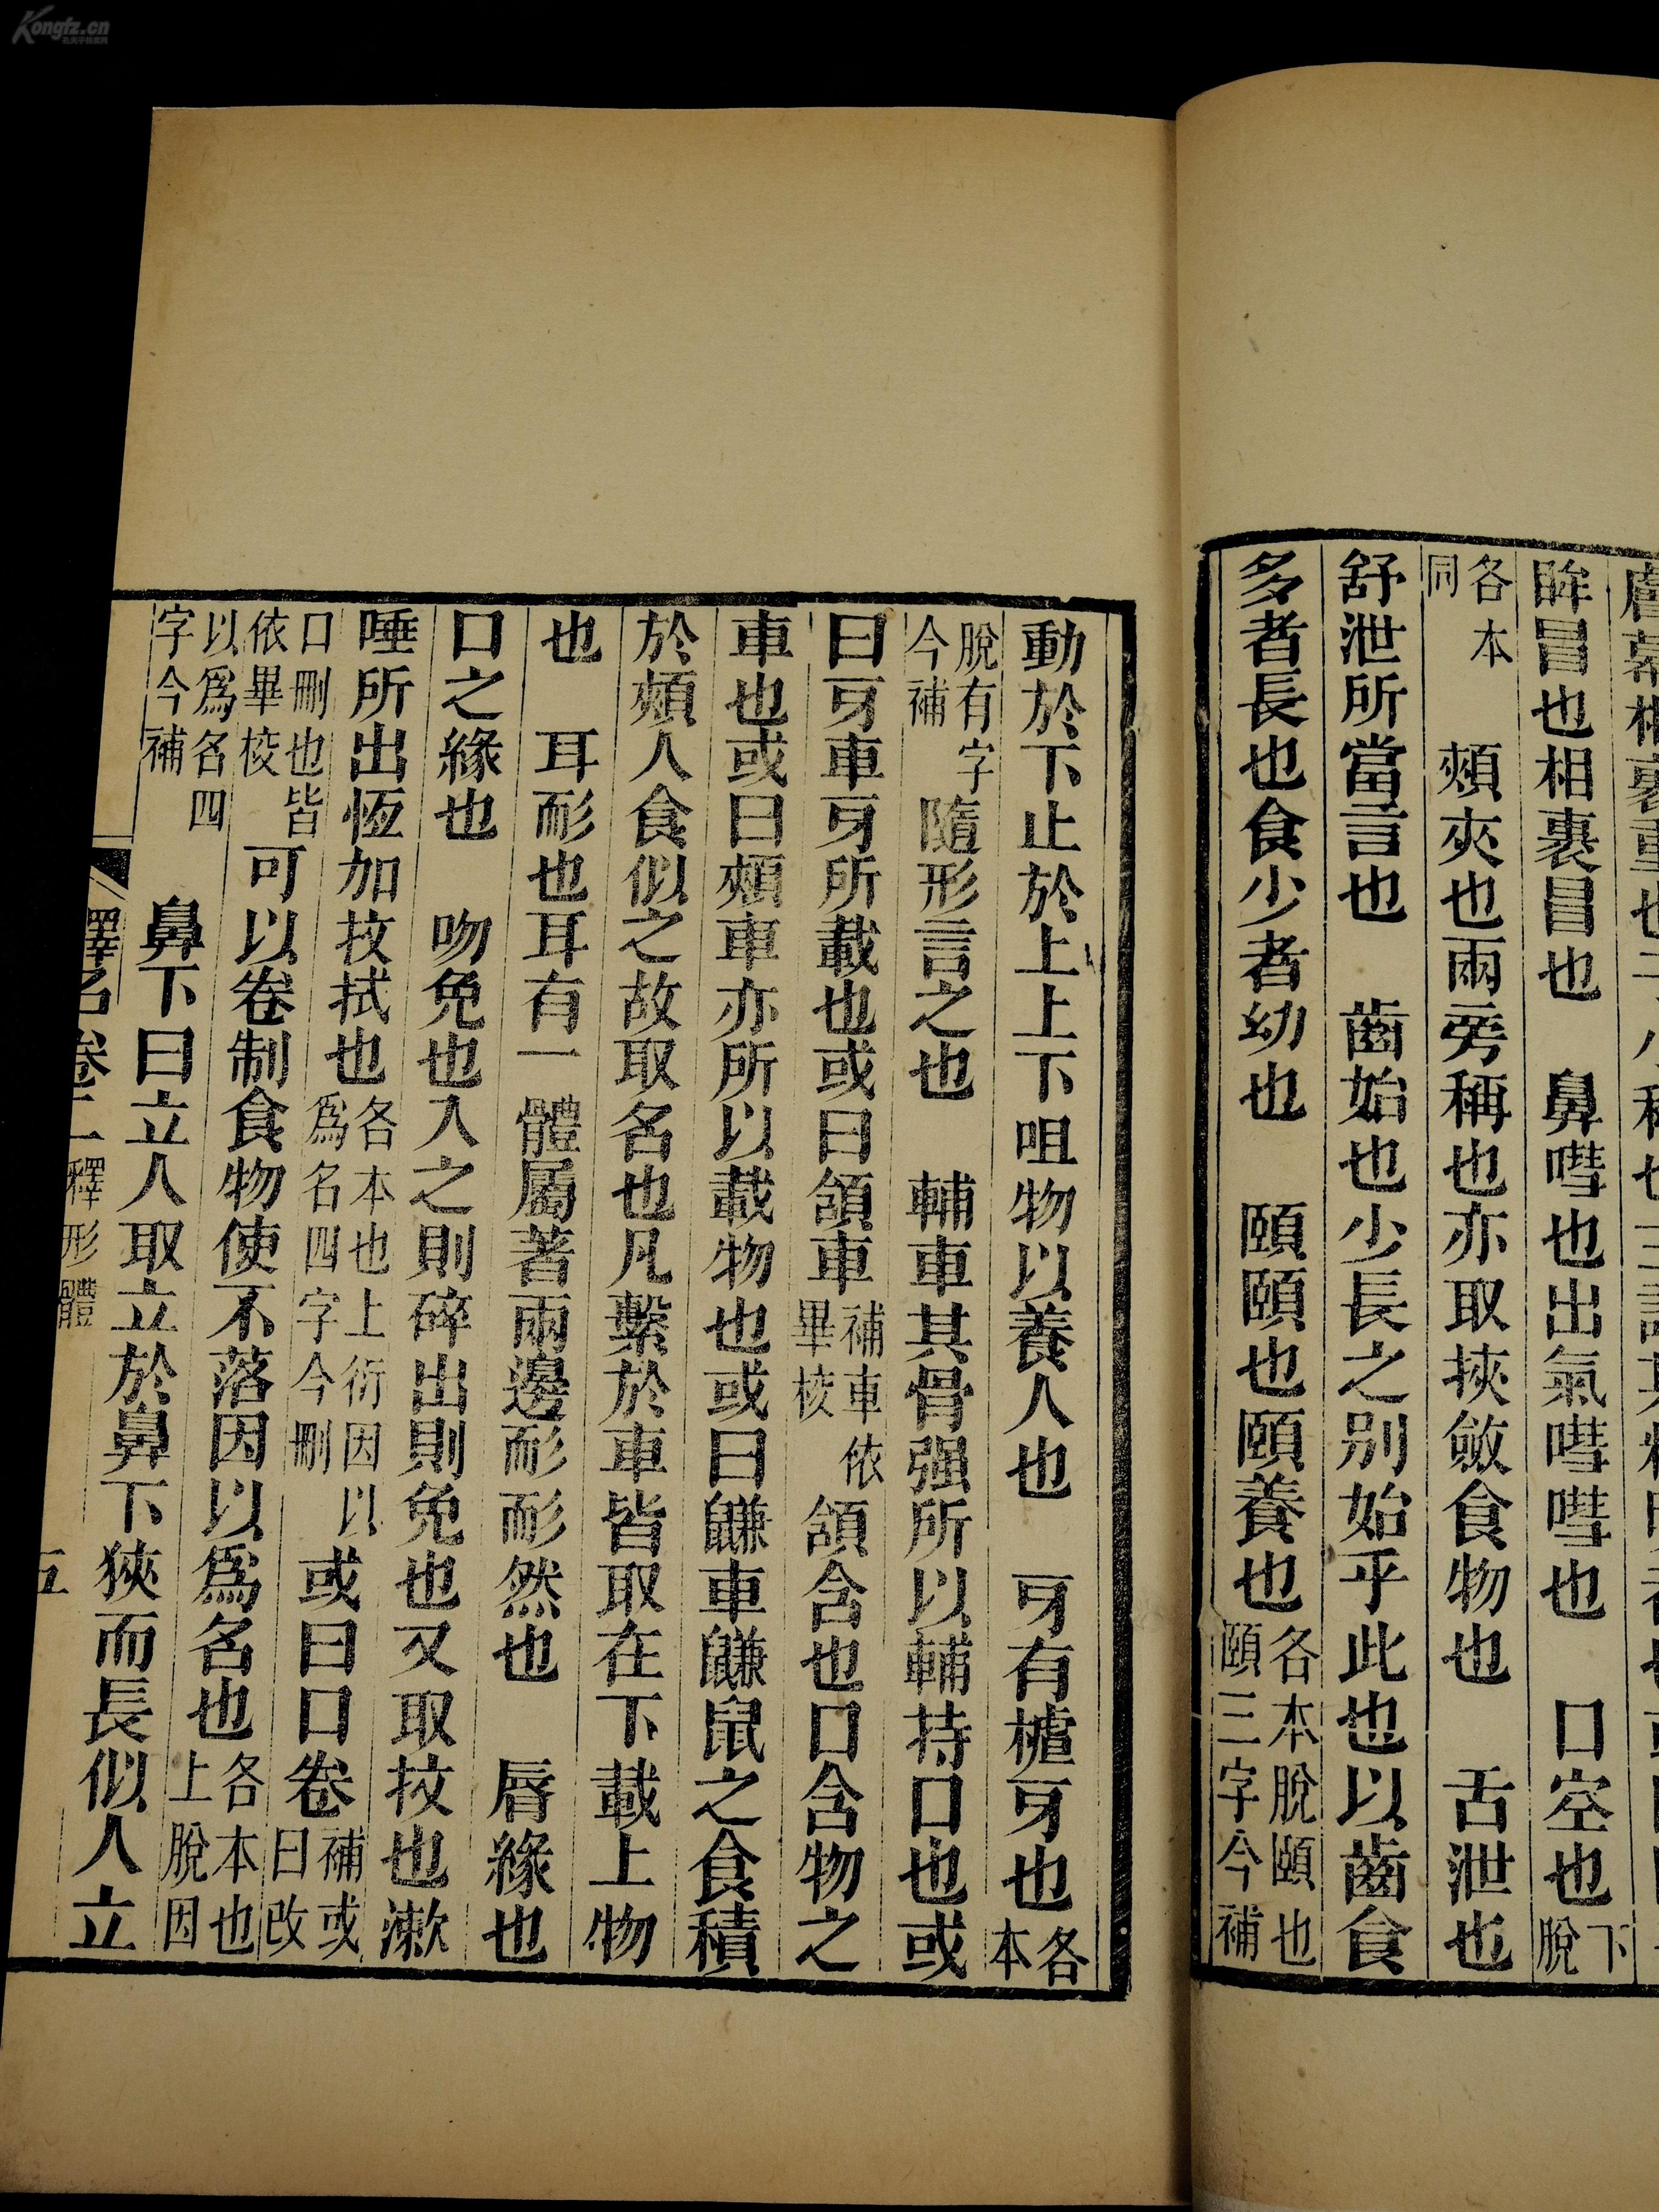 Kongfz.cn
孔夫子旧书网
眸冒也相裹冒也　鼻嘒也出氣嘒嘒也　口空也下脫
各本同　頰夾也兩旁稱也亦取挾斂食物也　舌泄也
舒泄所當言也　齒始也少長之別始乎此也以齒食
多者長也食少者幼也　頤頤也頤養也各本脫頤也頤三字今補
動於下止於上上下咀物以養人也　牙有樝牙也各本
脫有字今補隨形言之也　輔車其骨强所以輔持口也或
曰牙車牙所載也或曰頷車補車依畢校頷含也口含物之
車也或曰頰車亦所以載物也或曰鼸車鼸鼠之食積
於頰人食似之故取名也凡繫於車皆取在下載上物
也　耳耏也耳有一體屬著兩邊耏耏然也　脣緣也
口之緣也　吻免也入之則碎出則免也又取抆也漱
唾所出恆加抆拭也各本也上衍因以爲名四字今刪或曰口卷補或曰改
口刪也皆依畢校可以卷制食物使不落因以爲名也各本也上脫因
以爲名四字今補　鼻下曰立人取立於鼻下狹而長似人立
釋名卷二 釋形體　五